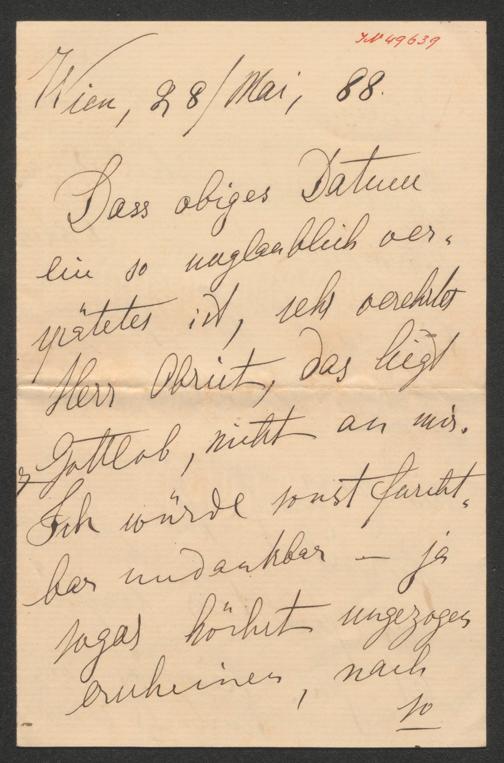 IN 49639
Wien, 28/Mai, 88.
Dass obiges Datum
ein so unglaublich ver-
spätetes ist, sehr verehrter
Herr Obrist, das liegt
Gottlob, nicht an mir.
Ich würde sonst furcht-
bar undankbar – ja
sogar höchst ungezogen
erscheinen, nach
so